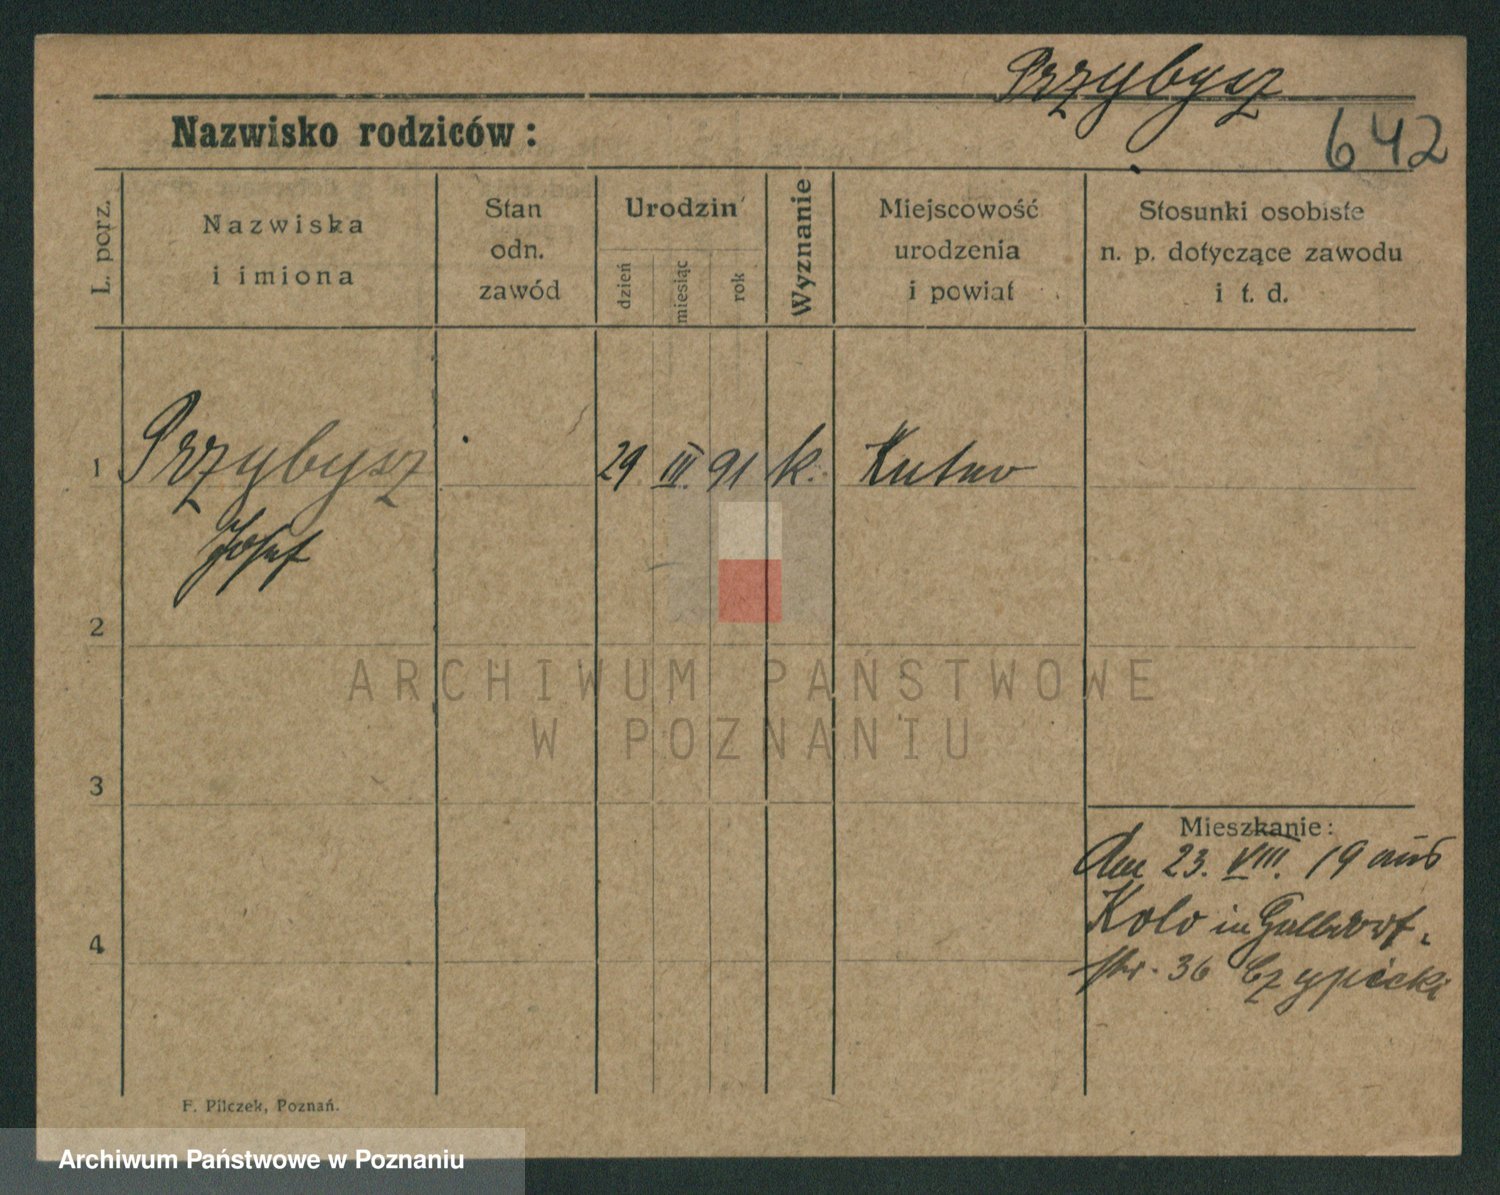 Przybysz
642
Nazwisko rodziców:
L. porz.
Nazwiska
i imiona
Stan
odn.
zawód
Urodzin
dzień
miesiąc
rok
Wyznanie
Miejscowość
urodzenia
i powiat
Stosunki osobiste
n. p. dotyczące zawodu
i t. d.
1 Przybysz 29. III. 91 k. Kutno
Josef
2
ARCHIWUM PAŃSTWOWE
W POZNANIU
3
Mieszkanie:
Am 23. VIII. 19 aus
Kolo in
4
str. 36 Czypicki
F. Pilczek, Poznań.
Archiwum Państwowe w Poznaniu